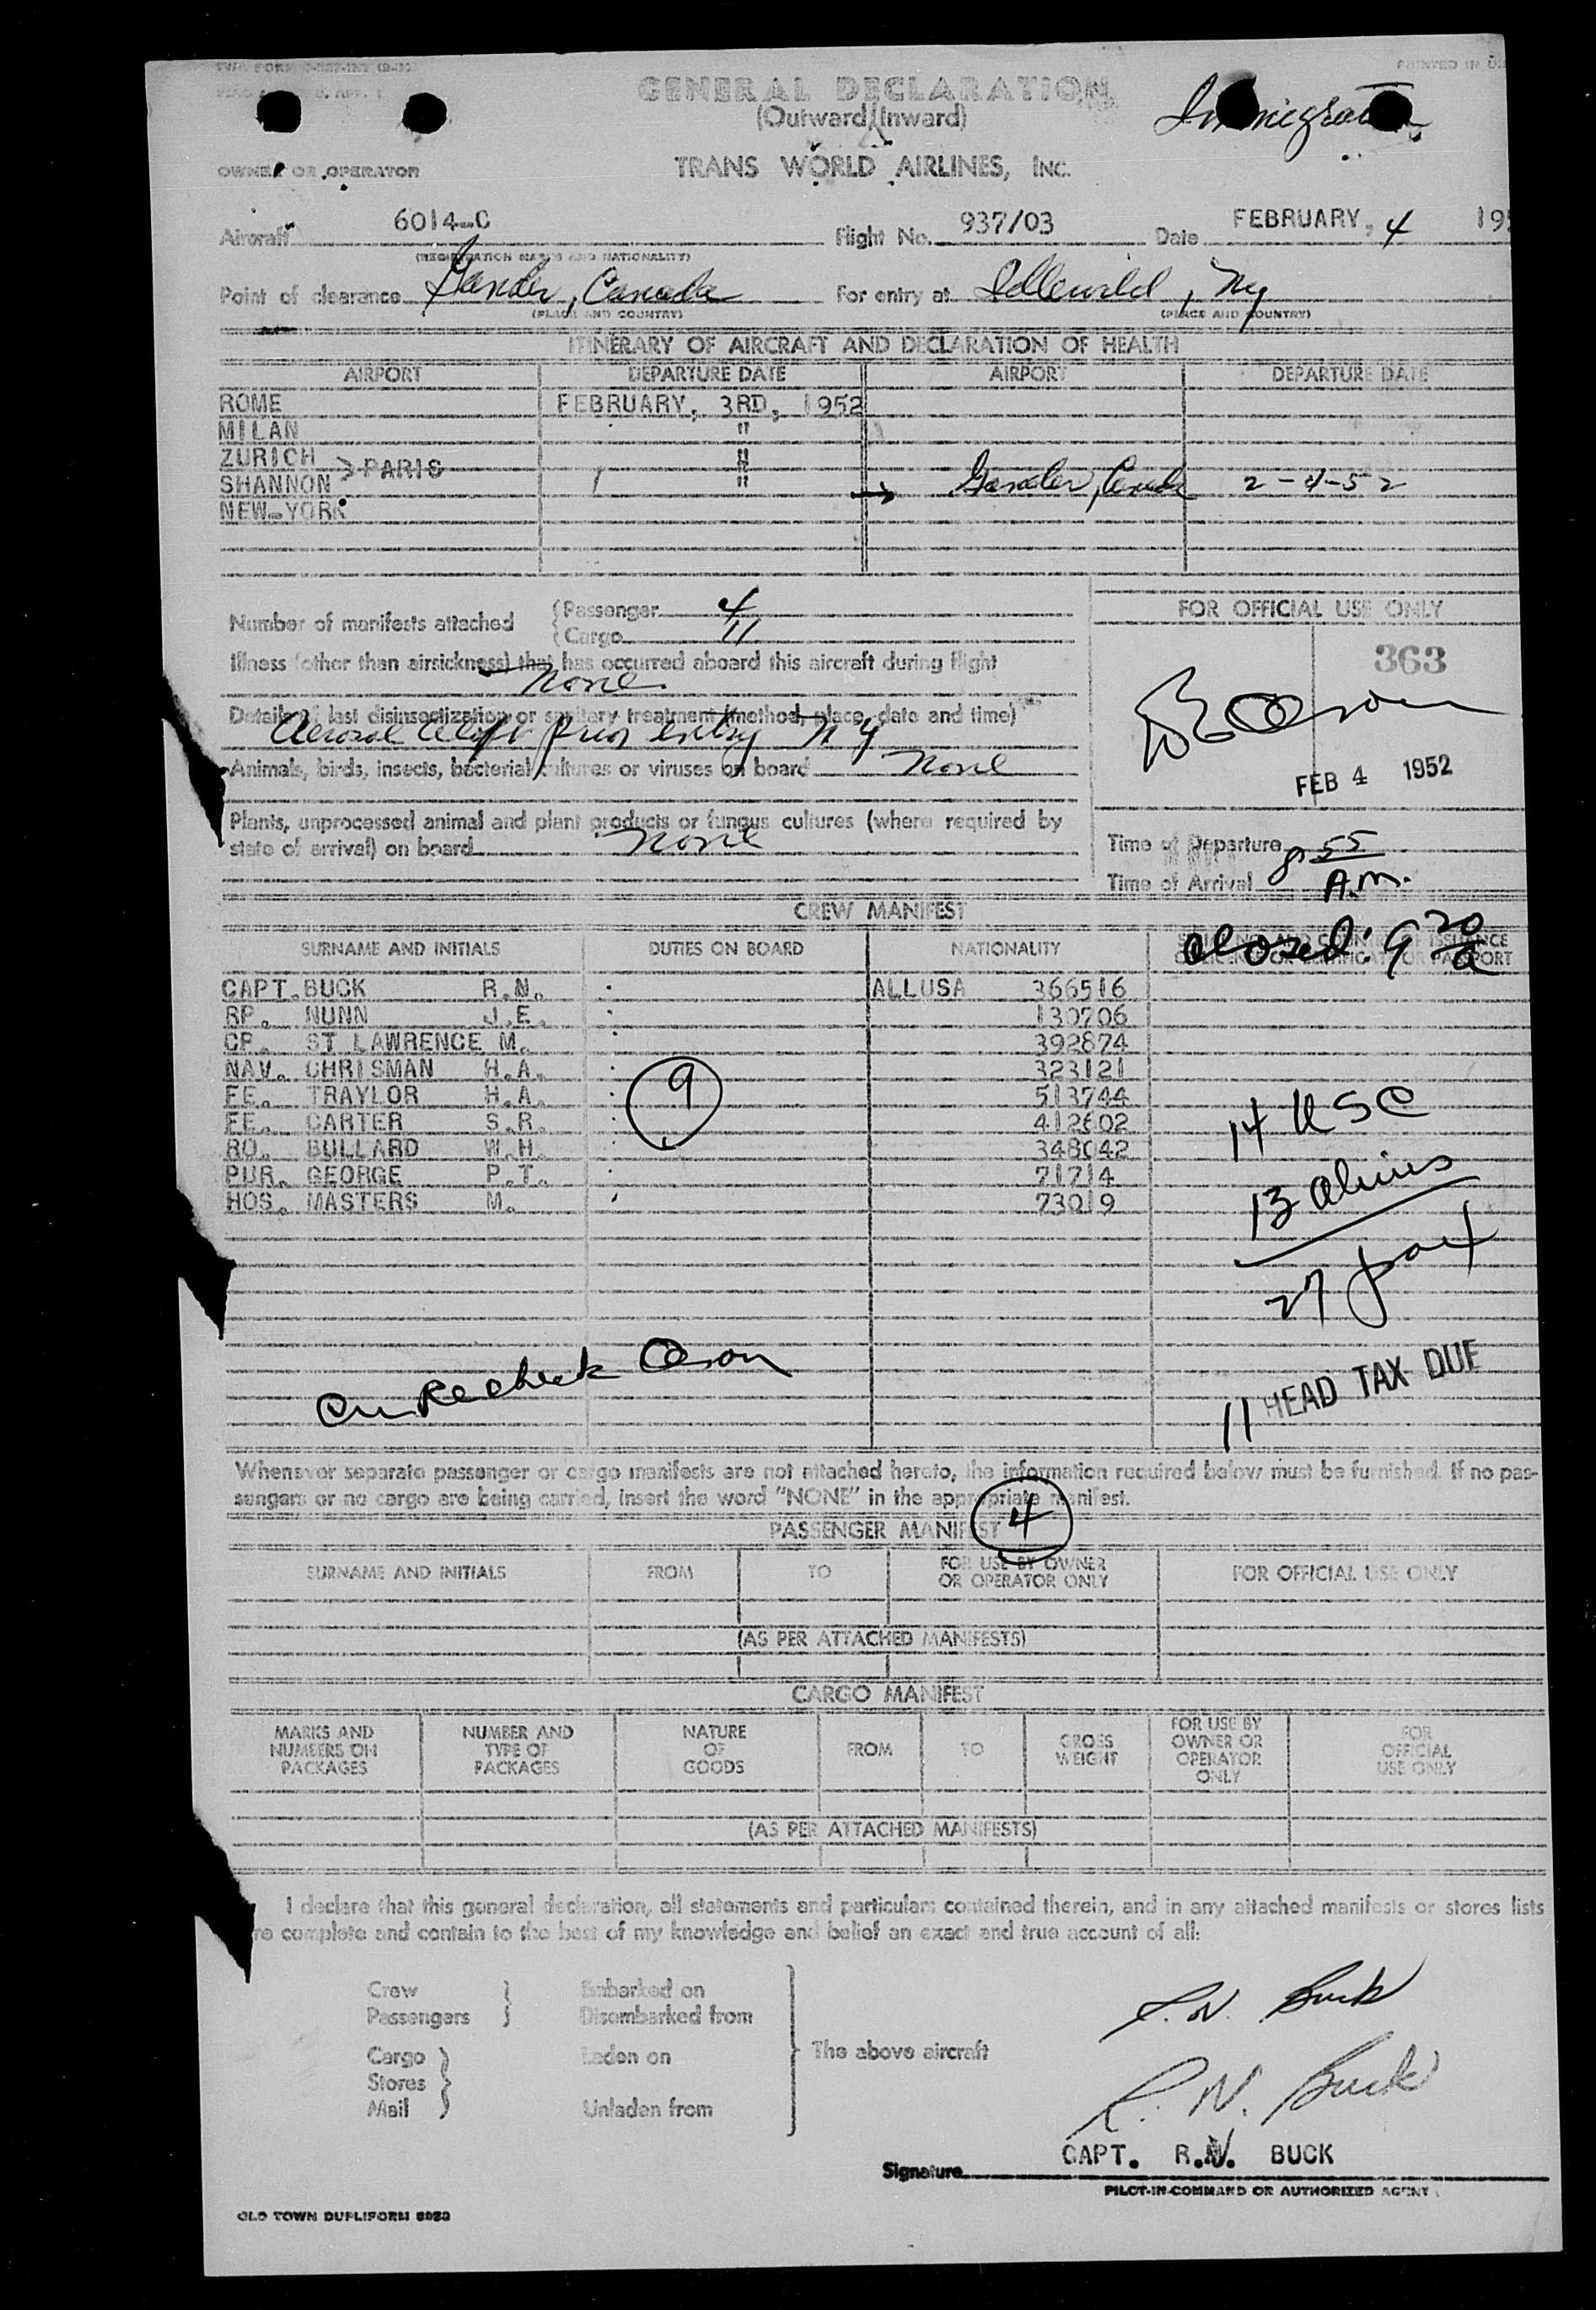 PRINTED IN
GENERAL DECLARATION
(Outward/Inward)
Immigration
OWNER OR OPERATOR
TRANS WORLD AIRLINES, INC.
Aircraft 6014-C Flight No. 937/03 Date FEBRUARY, 4 195
(REGISTRATION MARKS AND NATIONALITY)
Point of clearance Gander, Canada For entry at Idlewild, NY
(PLACE AND COUNTRY) (PLACE AND COUNTRY)
ITINERARY OF AIRCRAFT AND DECLARATION OF HEALTH
AIRPORT DEPARTURE DATE AIRPORT DEPARTURE DATE
ROME FEBRUARY, 3RD, 1952
MILAN "
ZURICH "
> PARIS "
SHANNON " → Gander, 2-4-52
NEW-YORK
Number of manifests attached
(Passenger 4
(Cargo 11
FOR OFFICIAL USE ONLY
363
Illness (other than airsickness) that has occurred aboard this aircraft during flight
None
Details of last disinsectization or sanitary treatment (method, place, date and time)
Aerosol prior entry NY
Olson
FEB 4 1952
Animals, birds, insects, bacterial cultures or viruses on board None
Plants, unprocessed animal and plant products or fungus cultures (where required by
state of arrival) on board None
Time of Departure 8 55
Time of Arrival A.M.
CREW MANIFEST
closed: 9 20 a
SURNAME AND INITIALS DUTIES ON BOARD NATIONALITY
CAPT. BUCK R.N. : ALLUSA 366516
RP. NUNN J.E. : 130706
CP. ST LAWRENCE M. : 392874
NAV. CHRISMAN H.A. : 323121
FE. TRAYLOR H.A. : 513744
FE. CARTER S.R. : 412602
RO. BULLARD W.H. : 348042
PUR. GEORGE P.T. 71714
HOS. MASTERS M. 73019
9
14 USC
13 aliens
27 pax
Recheck Olson
11 HEAD TAX DUE
Whenever separate passenger or cargo manifests are not attached hereto, the information required below must be furnished. If no pas-
sengers or no cargo are being carried, insert the word "NONE" in the appropriate manifest.
PASSENGER MANIFEST 4
SURNAME AND INITIALS FROM TO FOR USE BY OWNER OR OPERATOR ONLY FOR OFFICIAL USE ONLY
(AS PER ATTACHED MANIFESTS)
CARGO MANIFEST
MARKS AND NUMBERS ON PACKAGES NUMBER AND TYPE OF PACKAGES NATURE OF GOODS FROM TO GROSS WEIGHT FOR USE BY OWNER OR OPERATOR ONLY FOR OFFICIAL USE ONLY
(AS PER ATTACHED MANIFESTS)
I declare that this general declaration, all statements and particulars contained therein, and in any attached manifests or stores lists
re complete and contain to the best of my knowledge and belief an exact and true account of all:
Crew } Embarked on
Passengers } Disembarked from
Cargo } Laden on The above aircraft
Stores
Mail } Unladen from
R.N. Buck
R. N. Buck
CAPT. R.N. BUCK
Signature
PILOT-IN-COMMAND OR AUTHORIZED AGENT
OLD TOWN DUPLIFORM